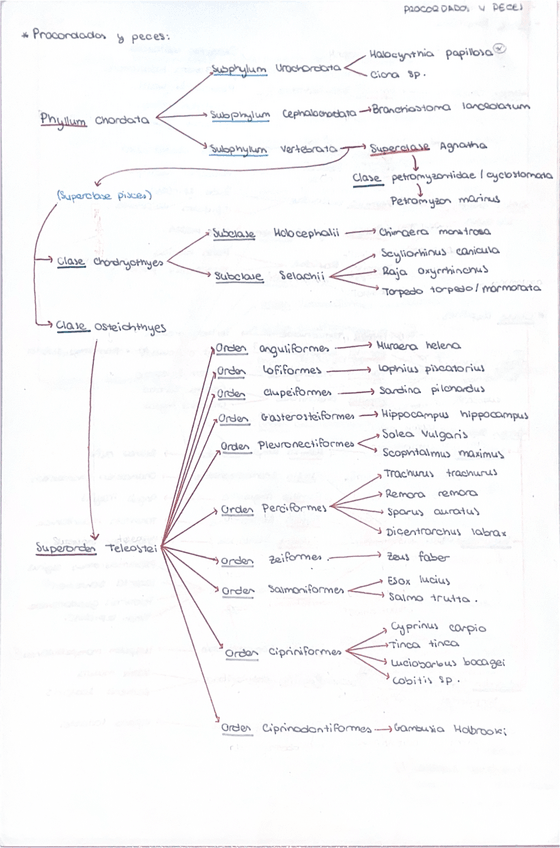 PROCORDADOS Y PECES
* Procordados y peces:
Subphylum Urochordata
Halocynthia papillosa
Ciona sp.
Phyllum Chordata
Subphylum Cephalochordata Branchiostoma lanceolatum
Subphylum Vertebrata Superclase Agnatha
Clase petromyzontidae / cyclostomata
Petromyzon marinus
(Superclase pisces)
Clase Chondrycthyes
Subclase Holocephalii Chimaera monstrosa
Subclase Selachii
Scyliorhinus canicula
Raja oxyrrhinchus
Torpedo torpedo / marmorata
Clase Osteichthyes
Superorden Teleostei
Orden anguliformes Muraena helena
Orden Lofiformes Lophius piscatorius
Orden Clupeiformes Sardina pilchardus
Orden Gasterosteiformes Hippocampus hippocampus
Orden Pleuronectiformes
Solea vulgaris
Scophtalmus maximus
Orden Perciformes
Trachurus trachurus
Remora remora
Sparus auratus
Dicentrarchus labrax
Orden Zeiformes Zeus faber
Orden Salmoniformes
Esox lucius
Salmo trutta.
Orden Cipriniformes
Cyprinus carpio
Tinca tinca
Luciobarbus bocagei
Cobitis sp.
Orden Ciprinodontiformes Gambusia Holbrooki